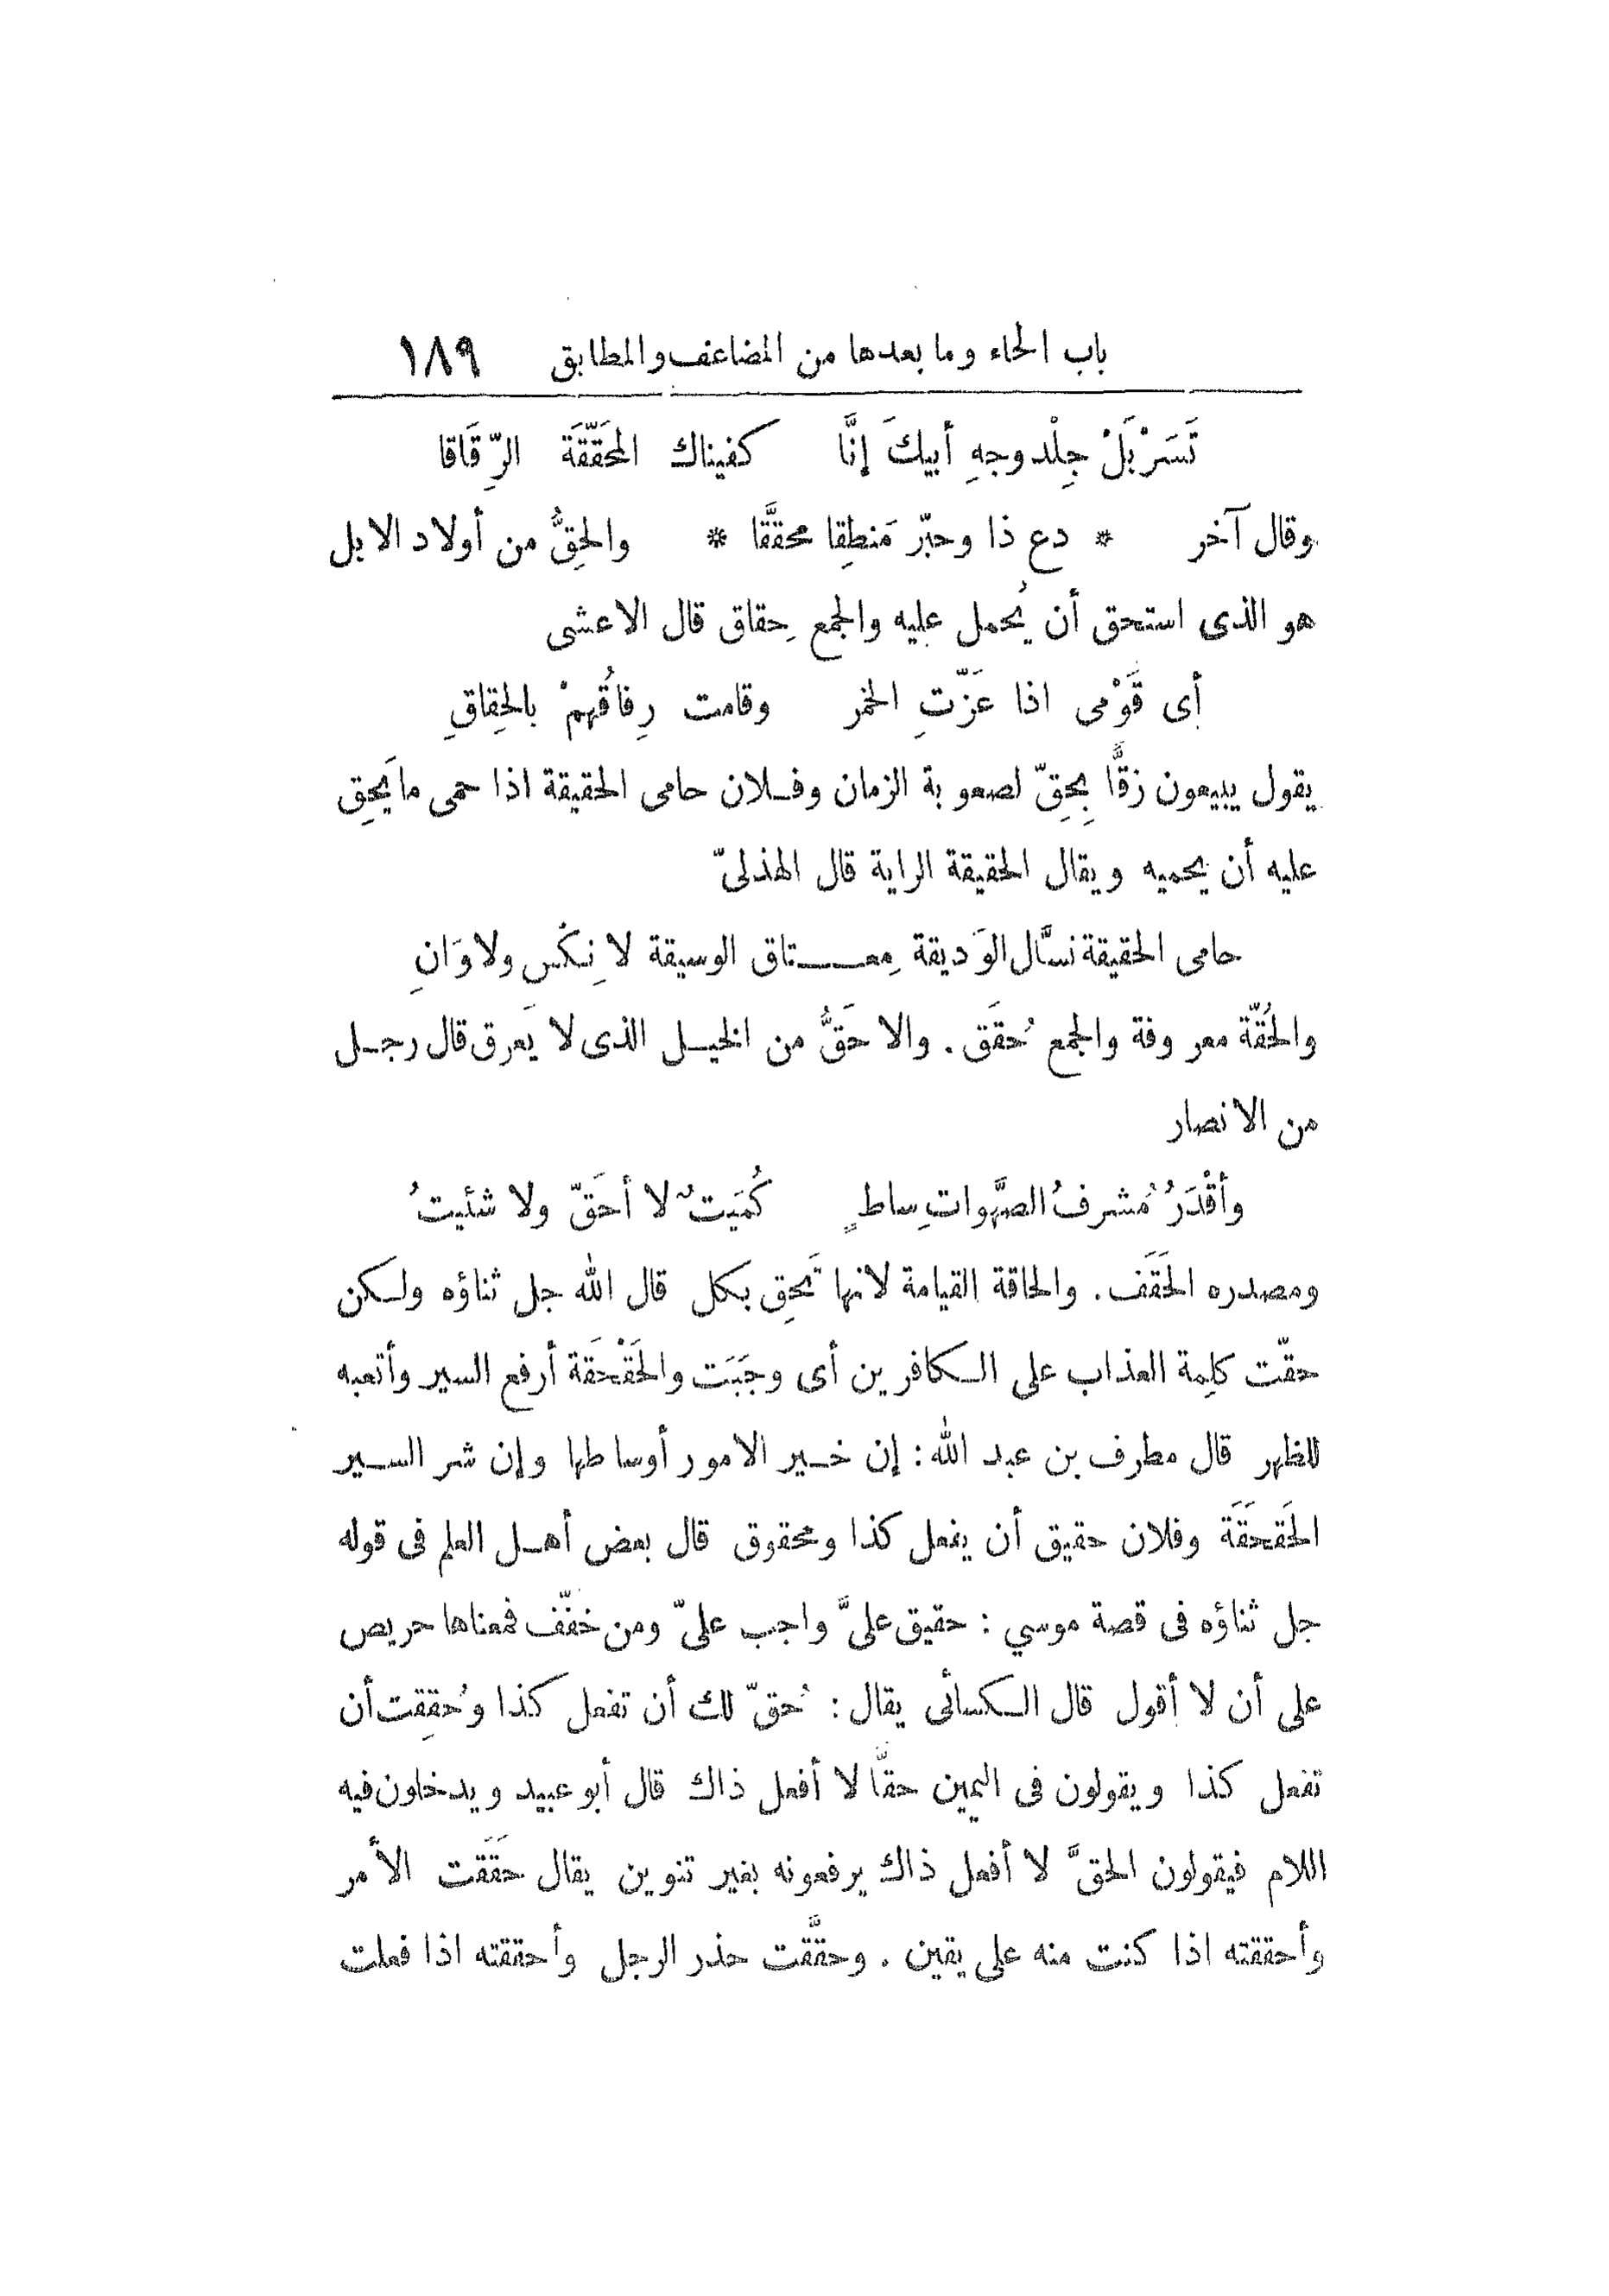 باب الحاء وما بعدها من المضاعف والمطابق ١٨٩
تَسَرْبَلْ جِلْد وجهِ أبيكَ إنَّا كفيناك المحَقَّقَة الرِّقَاقا
وقال آخر * دع ذا وحبّر مَنطِقا محققَّا * والحِقُّ من أولاد الابل
هو الذى استحق أن يُحمل عليه والجمع حِقاق قال الاعشى
أى قَوْمى اذا عَزّتِ الخمر وقامت رِفاقُهمْ بالحِقاقِ
يقول يبيعون زقًّا بِحِقّ لصعوبة الزمان وفلان حامى الحقيقة اذا حمى ما يَحِق
عليه أن يحميه ويقال الحقيقة الراية قال الهذلىّ
حامى الحقيقة نسَّال الوَديقة مِعـتاق الوسيقة لا نِكْس ولا وَانِ
والحُقّة معروفة والجمع حُقَق . والاحَقُّ من الخيـل الذى لا يَعرق قال رجـل
من الانصار
وأقْدَرُ مُشرفُ الصَّهوات ساطٍ كُمَيتٌ لا أحَقّ ولا شئيتُ
ومصدره الحَقَف . والحاقة القيامة لانها تَحِق بكل قال الله جل ثناؤه ولكن
حقّت كلِمة العذاب على الكافرين أى وجَبَت والحَقْحَقة أرفع السير وأتعبه
للظهر قال مطرف بن عبد الله : إن خـير الامور أوساطها وإن شر السـير
الحَقحَقَة وفلان حقيق أن يفعل كذا ومحقوق قال بعض أهـل العلم فى قوله
جل ثناؤه فى قصة موسي : حقيق علىَّ واجب علىّ ومن خفّف فمعناها حريص
على أن لا أقول قال الكسائى يقال : حُقّ لك أن تفعل كذا وحُقِقت أن
تفعل كذا ويقولون فى اليمين حقًّا لا أفعل ذاك قال أبو عبيد ويدخلون فيه
اللام فيقولون الحقَّ لا أفعل ذاك يرفعونه بغير تنوين يقال حَقَقت الأمر
وأحققته اذا كنت منه على يقين . وحقَّقت حذر الرجل وأحققته اذا فعلت